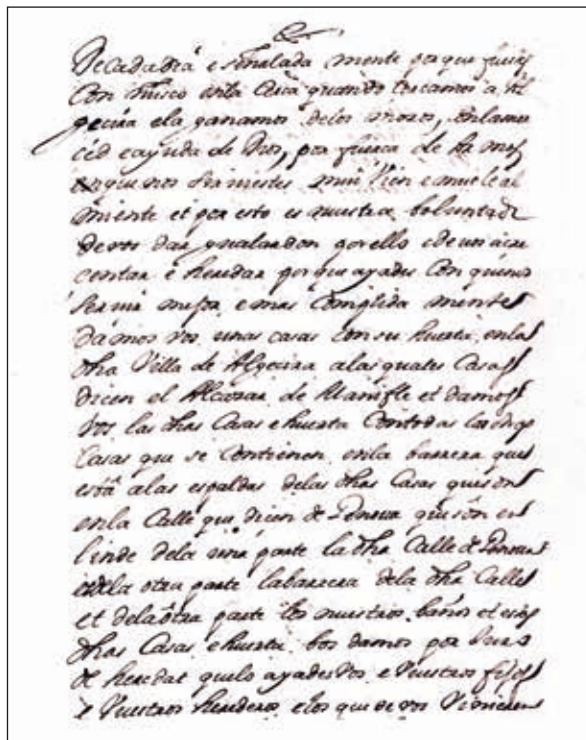 De cada dia e señalada mente porque fuisteis
con nusco en la cerca quando cercamos a Al
gecira e la ganamos de los moros, en la mer
ced e ayuda de Dios, por fuerza de
en que nos servistes mui bien e mui leal
miente et por esto es nuestra boluntad
de vos dar gualardon por ello e de vos acre
centar e heredar por que ayades con que nos
servir mejor e mas complida mente
damos vos unas casas con su huerta, en la
dha Villa de Algecira a las quales Casas
dicen el Alcazar de Manifle et damos
vos las dhas Casas e huerta con todas las otras
Casas que se contienen en la barrera que
está a las espaldas de las dhas Casas que son
en la Calle que dicen de Genova que son en
linde de la una parte la dha Calle de Genova
e de la otra parte la barrera de la dha Calle
et de la otra parte los nuestros baños et estas
dhas Casas e huerta vos damos por juro
de heredat que lo ayades Vos e Vuestros fijos
e Vuestros herederos e los que de vos Vinieren